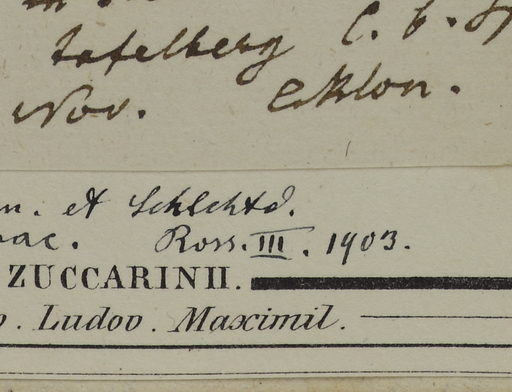 tafelberg C. b. Sp
Nov. Ecklon.
m. et Schlchtd.
bac. Ross. III. 1903.
ZUCCARINII.
o. Ludov. Maximil.